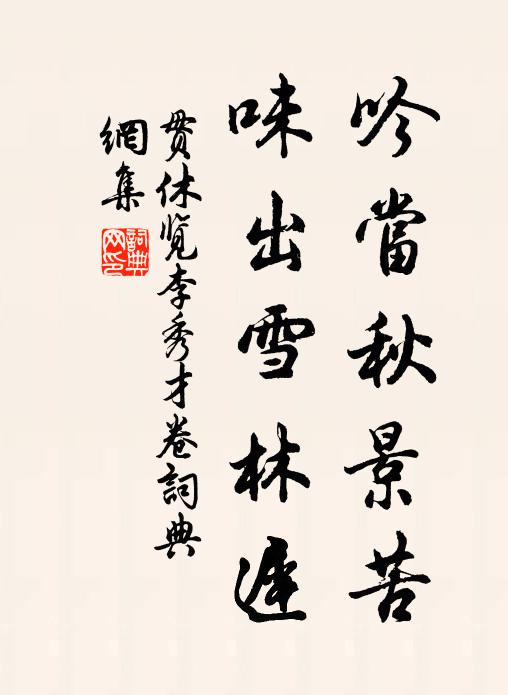 吟當秋景苦
味出雪林遲
貫休覽李秀才卷詞典
網集
詞典網印